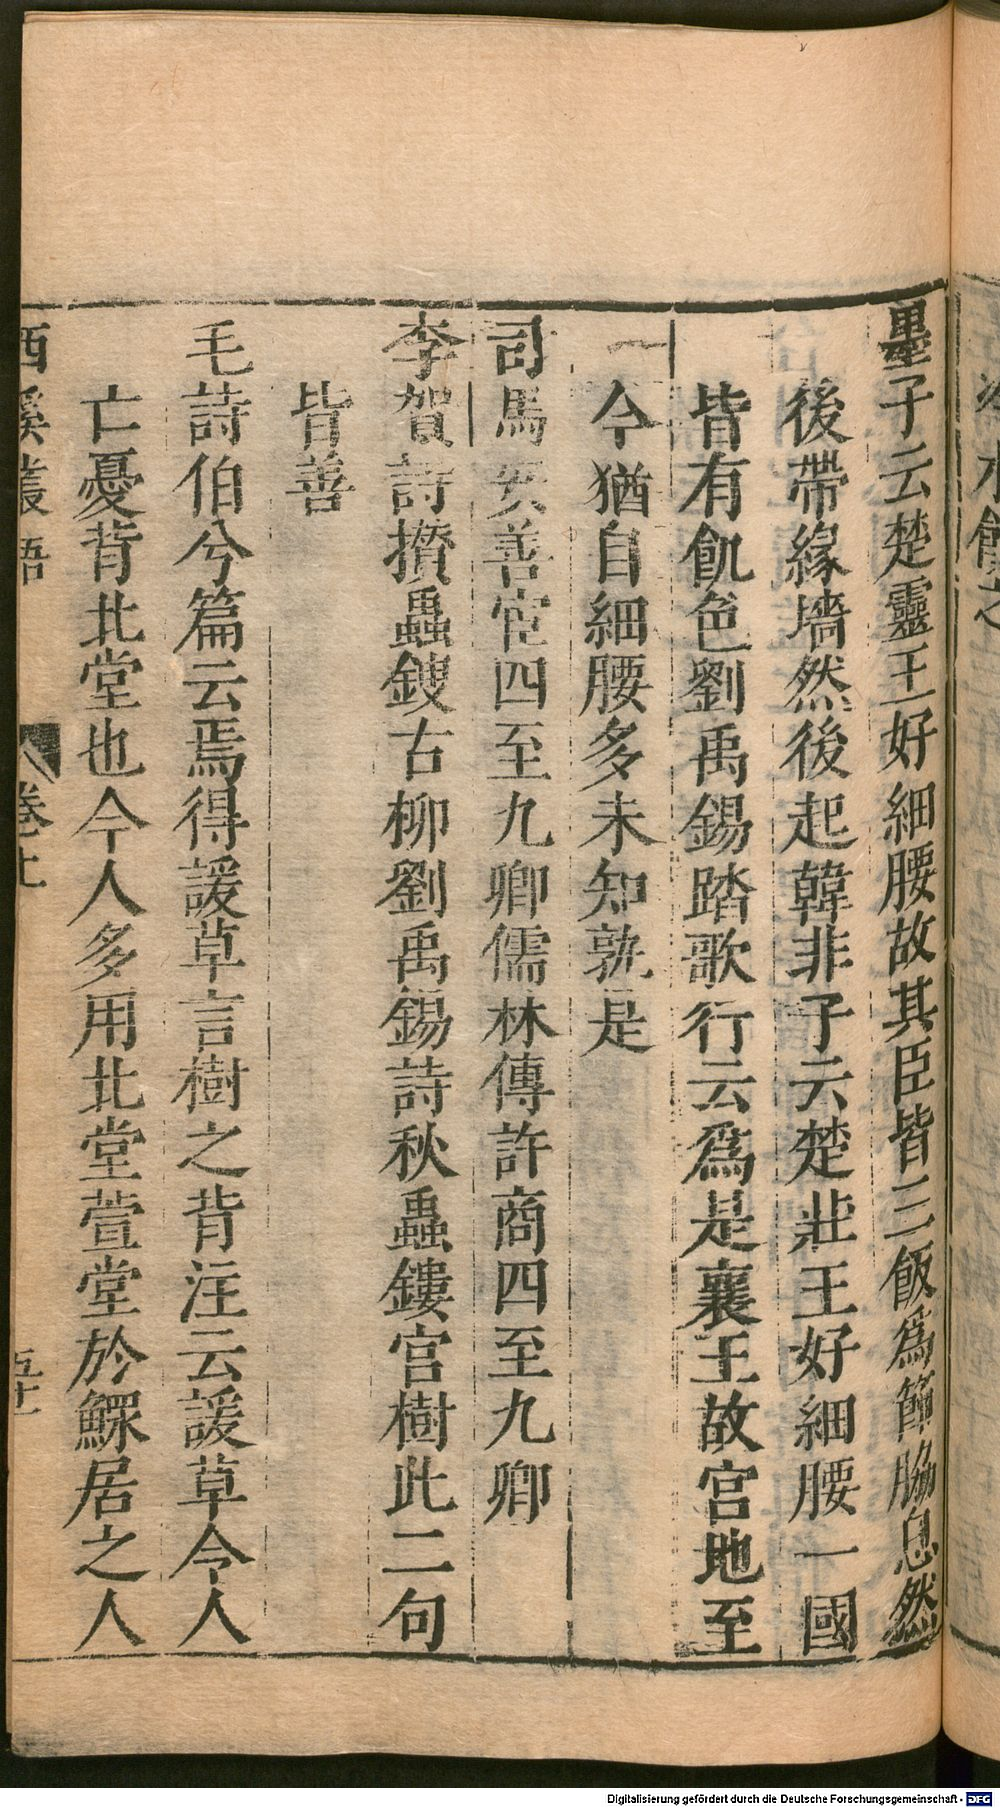 墨子云楚靈王好細腰故其臣皆三飯爲節脇息然
後帶緣墻然後起韓非子云楚莊王好細腰一國
皆有飢色劉禹錫踏歌行云爲是襄王故宮地至
今猶自細腰多未知孰是
司馬安善宦四至九卿儒林傳許商四至九卿
李賀詩攅蟲鎪古柳劉禹錫詩秋蟲鏤宮樹此二句
皆善
毛詩伯兮篇云焉得諼草言樹之背注云諼草令人
亡憂背北堂也今人多用北堂萱堂於鰥居之人
西溪叢語 卷上 五十一
Digitalisierung gefördert durch die Deutsche Forschungsgemeinschaft - DFG